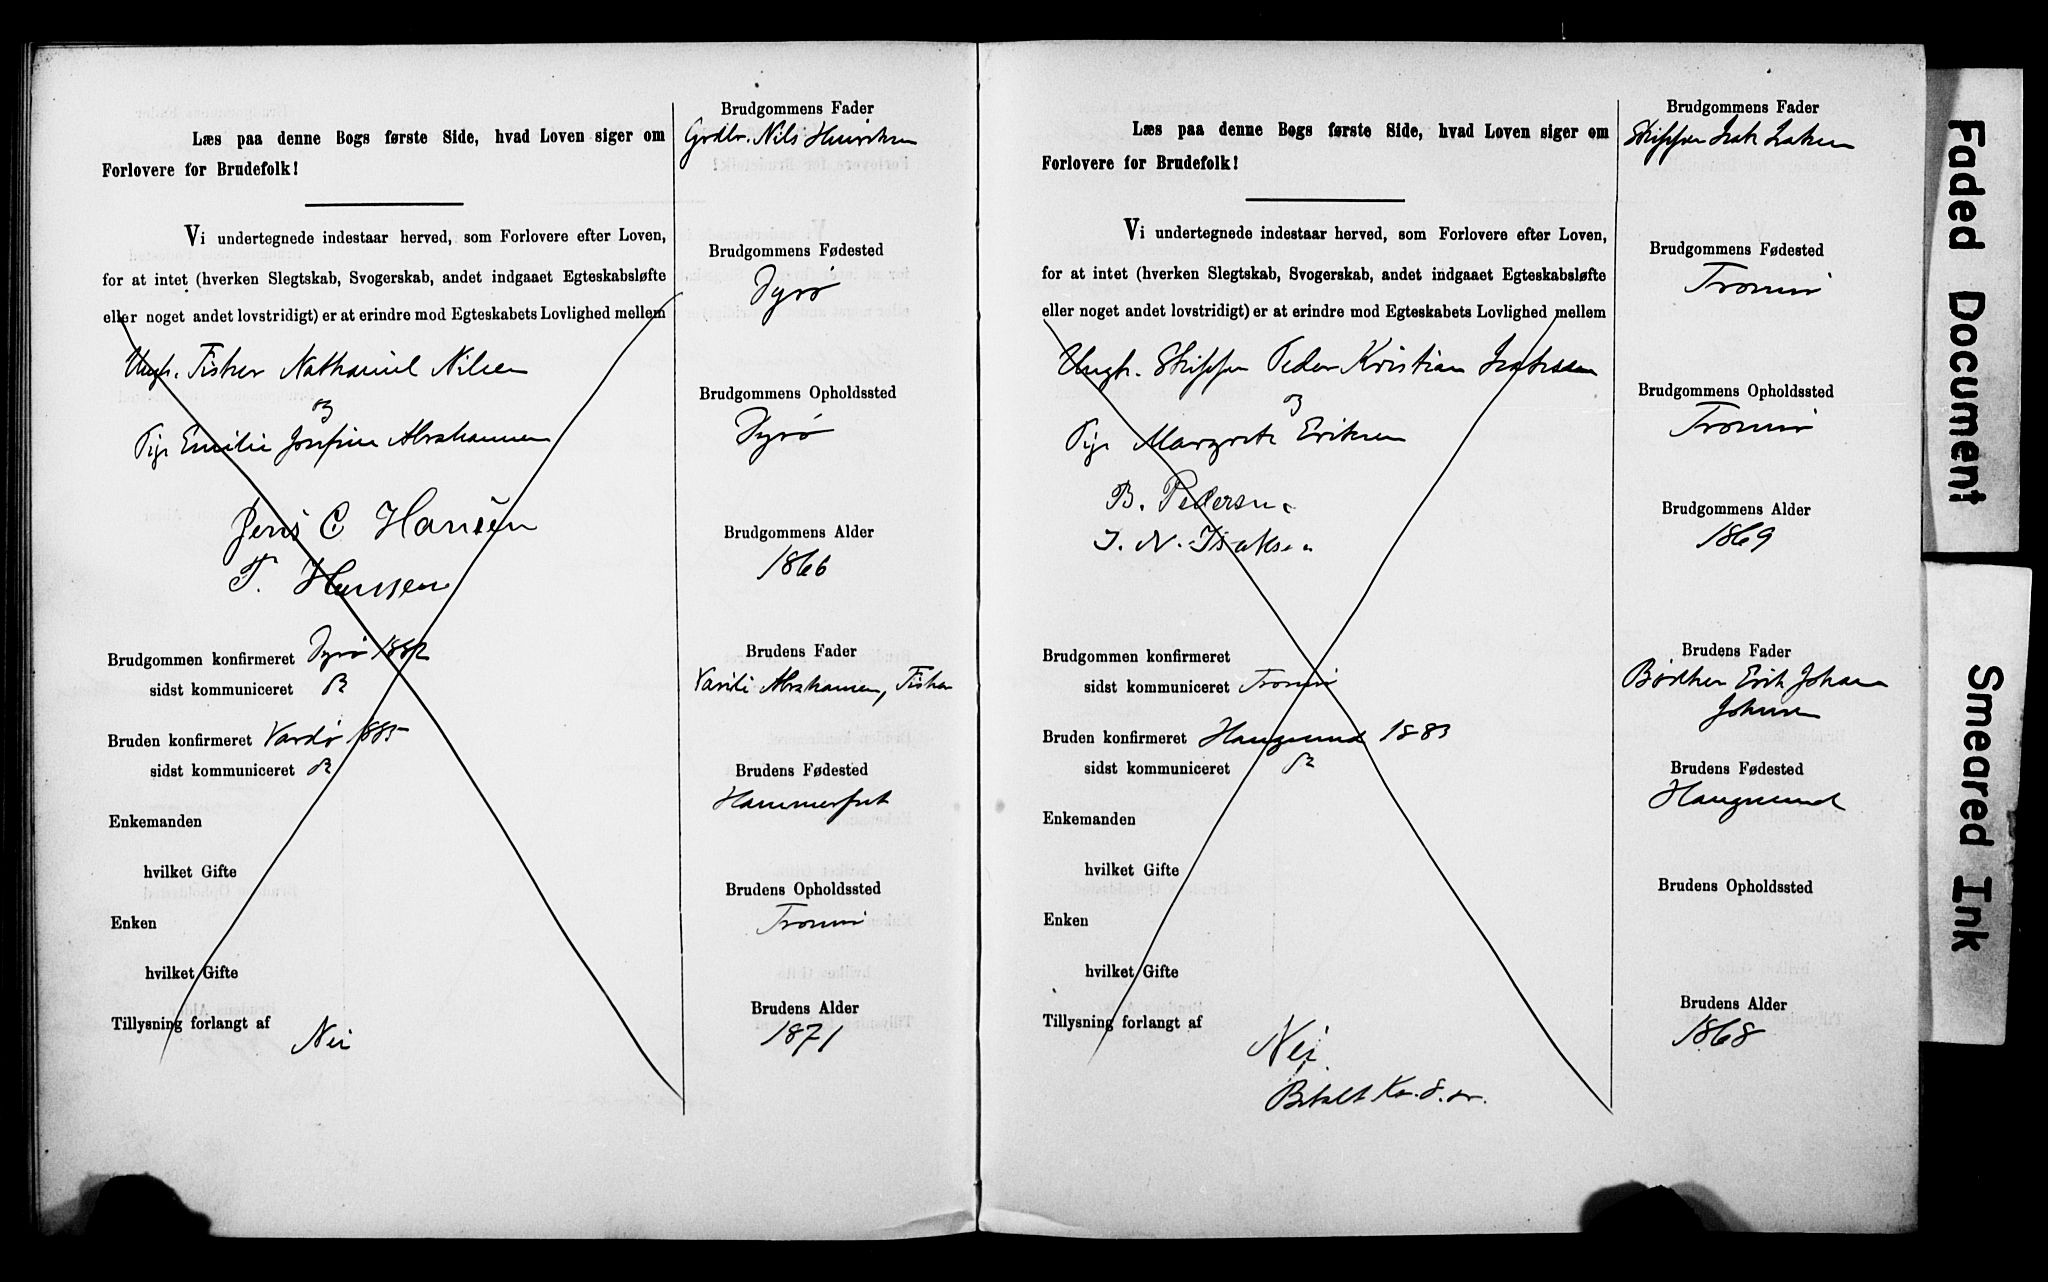 Læs paa denne Bogs første Side, hvad Loven siger om
Forlovere for Brudefolk!
Vi undertegnede indestaar herved, som Forlovere efter Loven,
for at intet (hverken Slegtskab, Svogerskab, andet indgaaet Egteskabsløfte
eller noget andet lovstridigt) er at erindre mod Egteskabets Lovlighed mellem
Ungk. Fisker Nathaniel Nilsen
og
Pige Emilie Josefine Abrahamsen
Jens C Hansen
T. Hanssen
Brudgommen konfirmeret Dyrø 1882
sidst kommuniceret
Bruden konfirmeret Vardø 1885
sidst kommuniceret
Enkemanden
hvilket Gifte
Enken
hvilket Gifte
Tillysning forlangt af
Nei
Brudgommens Fader
Grdbr. Nils Henriksen
Brudgommens Fødested
Dyrø
Brudgommens Opholdssted
Dyrø
Brudgommens Alder
1866
Brudens Fader
Abrahamsen, Fisker
Brudens Fødested
Hammerfest
Brudens Opholdssted
Tromsø
Brudens Alder
1871
Læs paa denne Bogs første Side, hvad Loven siger om
Forlovere for Brudefolk!
Vi undertegnede indestaar herved, som Forlovere efter Loven,
for at intet (hverken Slegtskab, Svogerskab, andet indgaaet Egteskabsløfte
eller noget andet lovstridigt) er at erindre mod Egteskabets Lovlighed mellem
Ungk. Skipper Peder Kristian Isaksen
og
Pige Margrete Eriksen
B. Pedersen
I. N. Isaksen
Brudgommen konfirmeret
sidst kommuniceret Tromsø
Bruden konfirmeret Haugesund 1883
sidst kommuniceret
Enkemanden
hvilket Gifte
Enken
hvilket Gifte
Tillysning forlangt af
Nei
Betalt Kr. 8.
Brudgommens Fader
Skipper Isak Isaksen
Brudgommens Fødested
Tromsø
Brudgommens Opholdssted
Tromsø
Brudgommens Alder
1869
Brudens Fader
Bødker Erik Johan
Johnsen
Brudens Fødested
Haugesund
Brudens Opholdssted
Brudens Alder
1868
Faded Document
Smeared Ink